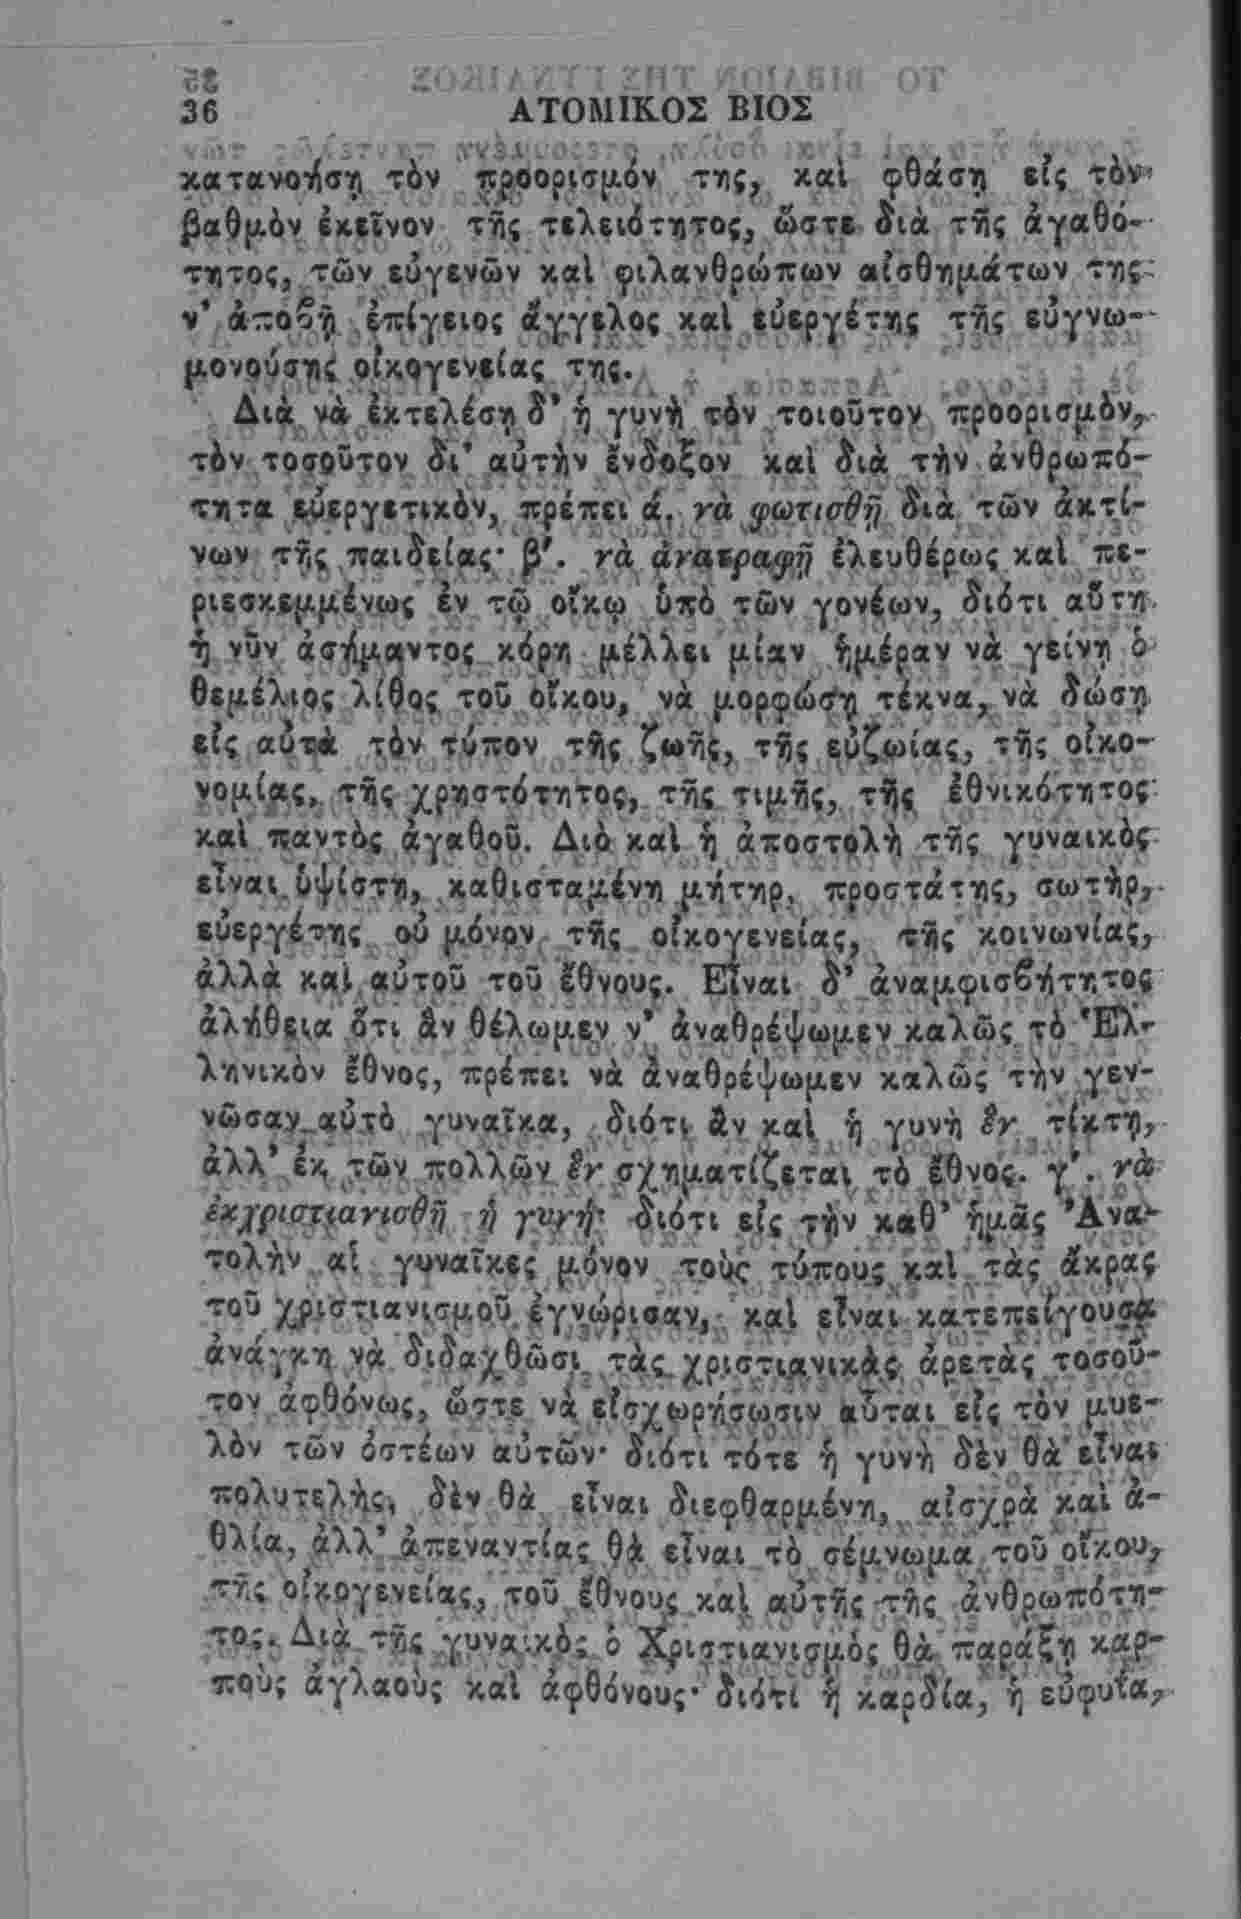 36 ΑΤΟΜΙΚΟΣ ΒΙΟΣ
κατανοήσῃ τὸν προορισμόν της, καὶ φθάσῃ εἰς τὸν
βαθμὸν ἐκεῖνον τῆς τελειότητος, ὥστε διὰ τῆς ἀγαθό-
τητος, τῶν εὐγενῶν καὶ φιλανθρώπων αἰσθημάτων της
ν' ἀποβῇ ἐπίγειος ἄγγελος καὶ εὐεργέτης τῆς εὐγνω-
μονούσης οἰκογενείας της.
Διὰ νὰ ἐκτελέσῃ δ' ἡ γυνὴ τὸν τοιοῦτον προορισμὸν,
τὸν τοσοῦτον δι' αὐτὴν ἔνδοξον καὶ διὰ τὴν ἀνθρωπό-
τητα εὐεργετικὸν, πρέπει ά. νὰ φωτισθῇ διὰ τῶν ἀκτί-
νων τῆς παιδείας· β'. νὰ ἀνατραφῇ ἐλευθέρως καὶ πε-
ριεσκεμμένως ἐν τῷ οἴκῳ ὑπὸ τῶν γονέων, διότι αὕτη
ἡ νῦν ἀσήμαντος κόρη μέλλει μίαν ἡμέραν νὰ γείνῃ ὁ
θεμέλιος λίθος τοῦ οἴκου, νὰ μορφώσῃ τέκνα, νὰ δώσῃ
εἰς αὐτὰ τὸν τύπον τῆς ζωῆς, τῆς εὐζωίας, τῆς οἰκο-
νομίας, τῆς χρηστότητος, τῆς τιμῆς, τῆς ἐθνικότητος
καὶ παντὸς ἀγαθοῦ. Διὸ καὶ ἡ ἀποστολὴ τῆς γυναικὸς
εἶναι ὑψίστη, καθισταμένη μήτηρ, προστάτης, σωτὴρ,
εὐεργέτης οὐ μόνον τῆς οἰκογενείας, τῆς κοινωνίας,
ἀλλὰ καὶ αὐτοῦ τοῦ ἔθνους. Εἶναι δ' ἀναμφισβήτητος
ἀλήθεια ὅτι ἂν θέλωμεν ν' ἀναθρέψωμεν καλῶς τὸ Ἑλ-
ληνικὸν ἔθνος, πρέπει νὰ ἀναθρέψωμεν καλῶς τὴν γεν-
νῶσαν αὐτὸ γυναῖκα, διότι ἂν καὶ ἡ γυνὴ ἓν τίκτῃ,
ἀλλ' ἐκ τῶν πολλῶν ἓν σχηματίζεται τὸ ἔθνος. γ'. νὰ
ἐκχριστιανισθῇ ἡ γυνή· διότι εἰς τὴν καθ' ἡμᾶς Ἀνα-
τολὴν αἱ γυναῖκες μόνον τοὺς τύπους καὶ τὰς ἄκρας
τοῦ χριστιανισμοῦ ἐγνώρισαν, καὶ εἶναι κατεπείγουσα
ἀνάγκη νὰ διδαχθῶσι τὰς χριστιανικὰς ἀρετὰς τοσοῦ-
τον ἀφθόνως, ὥστε νὰ εἰσχωρήσωσιν αὗται εἰς τὸν μυε-
λὸν τῶν ὀστέων αὐτῶν· διότι τότε ἡ γυνὴ δὲν θὰ εἶναι
πολυτελὴς, δὲν θὰ εἶναι διεφθαρμένη, αἰσχρὰ καὶ ἀ-
θλία, ἀλλ' ἀπεναντίας θὰ εἶναι τὸ σέμνωμα τοῦ οἴκου,
τῆς οἰκογενείας, τοῦ ἔθνους καὶ αὐτῆς τῆς ἀνθρωπότη-
τος. Διὰ τῆς γυναικὸς ὁ Χριστιανισμὸς θὰ παράξῃ καρ-
ποὺς ἀγλαοὺς καὶ ἀφθόνους· διότι ἡ καρδία, ἡ εὐφυΐα,